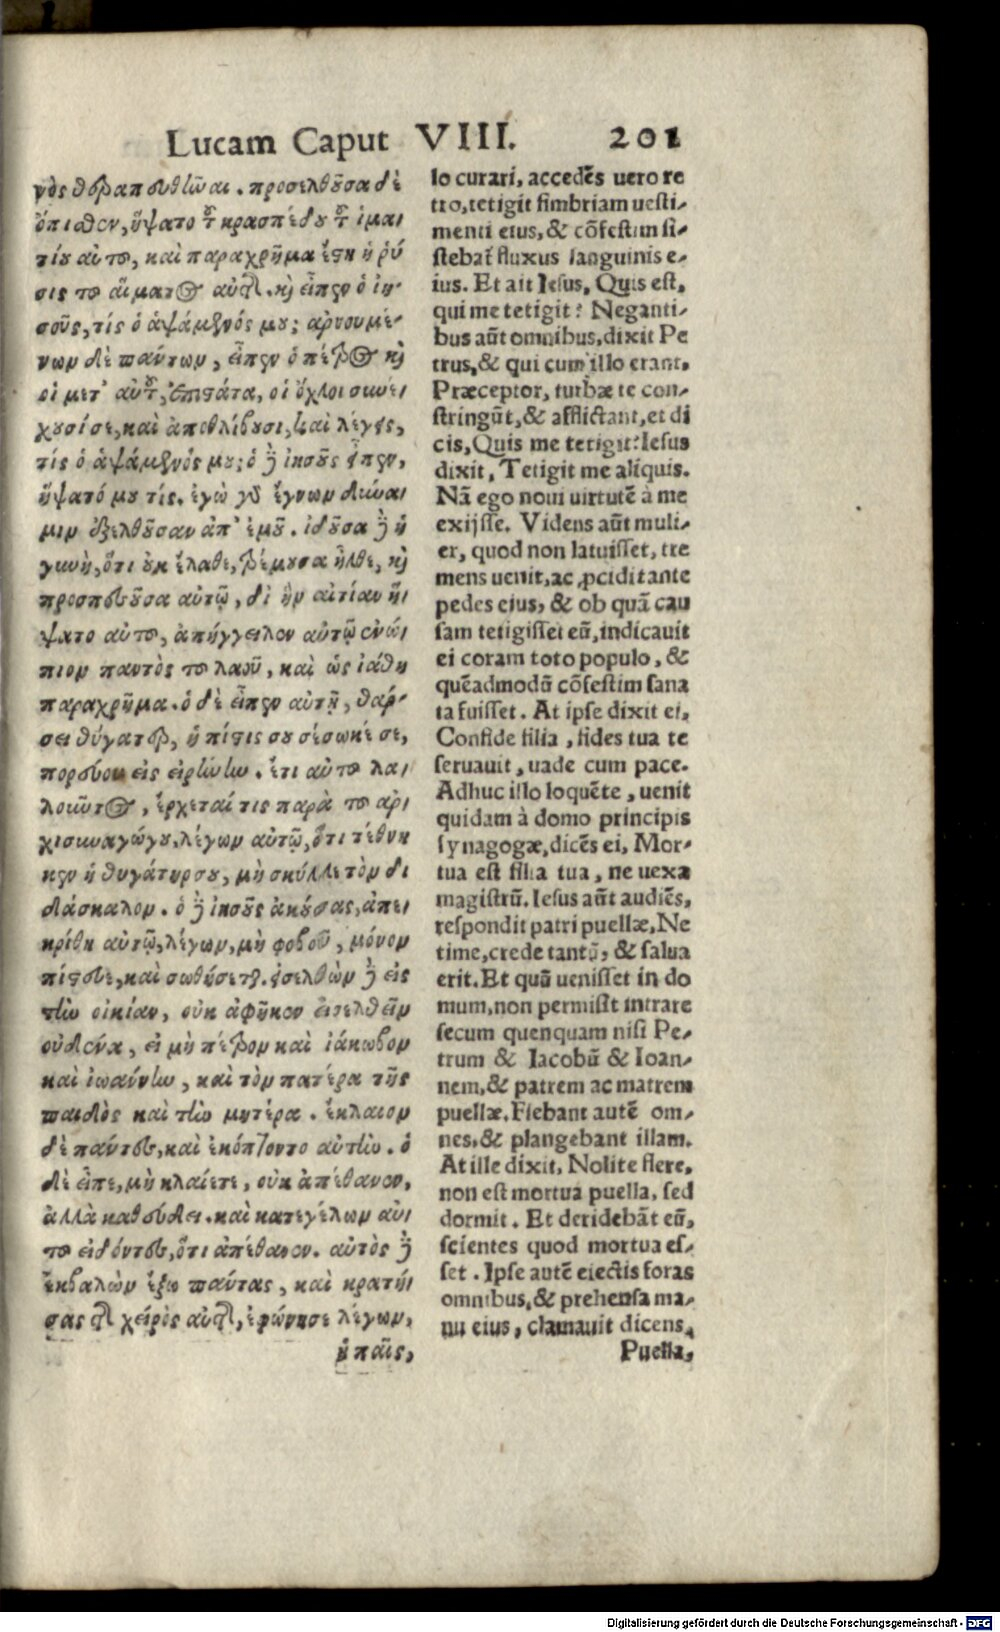 Lucam Caput VIII. 201
νὸς θεραπευθῆναι. προσελθοῦσα δὲ
ὄπισθεν, ἥψατο τοῦ κρασπέδου τοῦ ἱμα-
τίου αὐτοῦ, καὶ παραχρῆμα ἔστη ἡ ῥύ
σις τοῦ αἵματος αὐτῆς. καὶ εἶπεν ὁ ἰη-
σοῦς, τίς ὁ ἁψάμενός μου; ἀρνουμέ-
νων δὲ πάντων, εἶπεν ὁ πέτρος καὶ
οἱ μετ' αὐτοῦ, ἐπιστάτα, οἱ ὄχλοι συνέ-
χουσί σε, καὶ ἀποθλίβουσι, καὶ λέγεις,
τίς ὁ ἁψάμενός μου; ὁ δὲ ἰησοῦς εἶπεν,
ἥψατό μου τίς. ἐγὼ γὰρ ἔγνων δύνα-
μιν ἐξελθοῦσαν ἀπ' ἐμοῦ. ἰδοῦσα δὲ ἡ
γυνὴ, ὅτι οὐκ ἔλαθε, τρέμουσα ἦλθε, καὶ
προσπεσοῦσα αὐτῷ, δι ἣν αἰτίαν ἥ-
ψατο αὐτοῦ, ἀπήγγειλεν αὐτῷ ἐνώ-
πιον παντὸς τοῦ λαοῦ, καὶ ὡς ἰάθη
παραχρῆμα. ὁ δὲ εἶπεν αὐτῇ, θάρ-
σει θύγατερ, ἡ πίστις σου σέσωκέ σε,
πορεύου εἰς εἰρήνην. ἔτι αὐτοῦ λα-
λοῦντος, ἔρχεταί τις παρὰ τοῦ ἀρ-
χισυναγώγου, λέγων αὐτῷ, ὅτι τέθνη
κεν ἡ θυγάτηρ σου, μὴ σκύλλε τὸν δι
δάσκαλον. ὁ δὲ ἰησοῦς ἀκούσας, ἀπε-
κρίθη αὐτῷ, λέγων, μὴ φοβοῦ, μόνον
πίστευε, καὶ σωθήσεται. εἰσελθὼν δὲ εἰς
τὴν οἰκίαν, οὐκ ἀφῆκεν εἰσελθεῖν
οὐδένα, εἰ μὴ πέτρον καὶ ἰάκωβον
καὶ ἰωάννην, καὶ τὸν πατέρα τῆς
παιδὸς καὶ τὴν μητέρα. ἔκλαιον
δὲ πάντες, καὶ ἐκόπτοντο αὐτὴν. ὁ
δὲ εἶπε, μὴ κλαίετε, οὐκ ἀπέθανεν,
ἀλλὰ καθεύδει. καὶ κατεγέλων αὐ-
τοῦ εἰδότες, ὅτι ἀπέθανεν. αὐτὸς δὲ
ἐκβαλὼν ἔξω πάντας, καὶ κρατή-
σας τῆς χειρὸς αὐτῆς, ἐφώνησε λέγων,
ἡ παῖς,
lo curari, accedēs uero re
tro, tetigit fimbriam uesti-
menti eius, & cōfestim si-
stebat̃ fluxus sanguinis e-
ius. Et ait Iesus, Quis est,
qui me tetigit? Neganti-
bus aūt omnibus, dixit Pe
trus, & qui cum illo erant.
Præceptor, turbæ te con-
stringūt, & afflictant, et di
cis, Quis me tetigit? Iesus
dixit, Tetigit me aliquis.
Nā ego noui uirtutē à me
exijsse. Videns aūt muli-
er, quod non latuisset, tre
mens uenit, ac ꝓcidit ante
pedes eius, & ob quā cau
sam tetigisset eū, indicauit
ei coram toto populo, &
quēadmodū cōfestim sana
ta fuisset. At ipse dixit ei,
Confide filia, fides tua te
seruauit, uade cum pace.
Adhuc illo loquēte, uenit
quidam à domo principis
synagogæ, dicēs ei, Mor-
tua est filia tua, ne uexa
magistrū. Iesus aūt audiēs,
respondit patri puellæ, Ne
time, crede tantū, & salua
erit. Et quū uenisset in do
mum, non permisit intrare
secum quenquam nisi Pe-
trum & Iacobū & Ioan-
nem, & patrem ac matrem
puellæ. Flebant autē om-
nes, & plangebant illam.
At ille dixit, Nolite flere,
non est mortua puella, sed
dormit. Et deridebāt eū,
scientes quod mortua es-
set. Ipse autē eiectis foras
omnibus, & prehensa ma-
nu eius, clamauit dicens,
Puella,
Digitalisierung gefördert durch die Deutsche Forschungsgemeinschaft - DFG